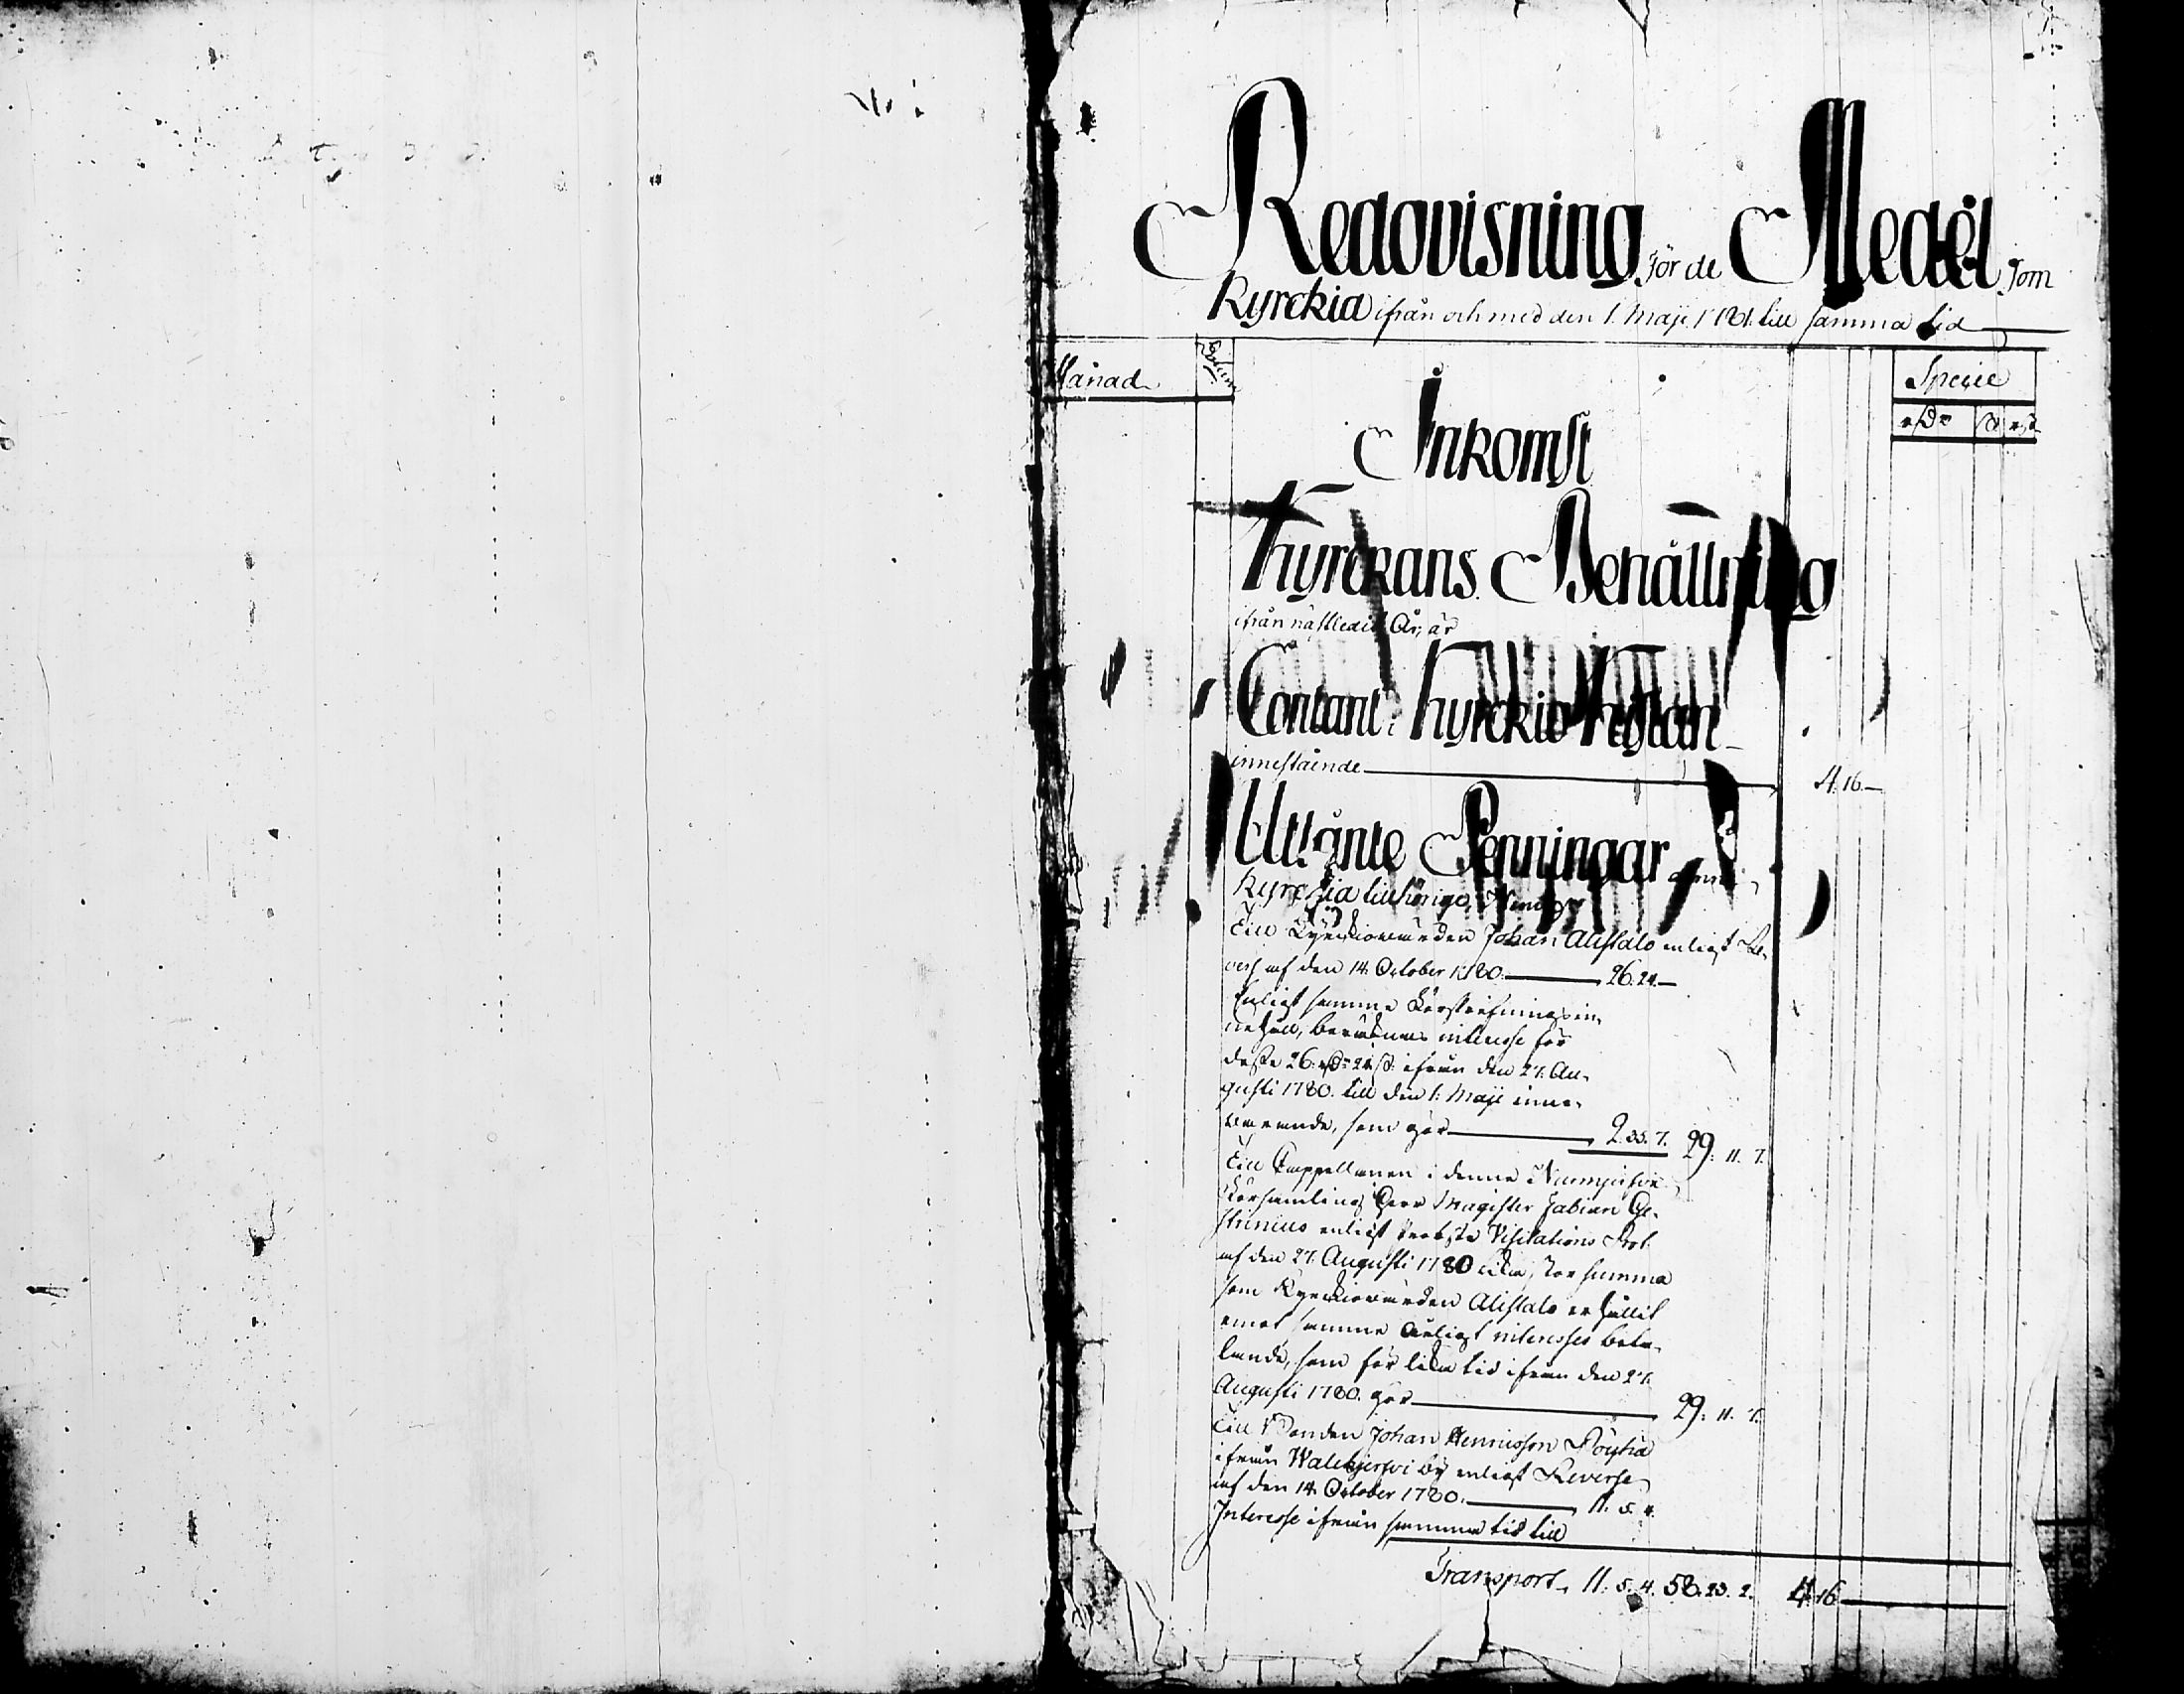 Redovisning för de Medel som
Kyrckia ifrån och med den 1. Maji 1781. till samma tid
Månad
Datum
Specie
rdr ß rst
Inkomst
Kyrckans Behållning
ifrån nästledit År, är
Contant i Kyrckio Kistan
innestående 4. 16. —
Utlånte Penningar
Kyrckia tillhörige,
Till Kyrckiowärden Johan Alistalo enligt Re-
vers af den 14. October 1780. 26. 24. —
Enligt samma Förskrifnings in-
nehåll, beräknas interesse för
desse 26. rdr 24 ß. ifrån den 27. Au-
gusti 1780. till den 1. Maji inne-
warande, som gör 2. 35. 7. 29. 11. 7.
Till Cappellanen i denna
Församling Herr Magister Fabian
enligt Visitations Prot.
af den 27. Augusti 1780 lika stor summa
som Kyrckiowärden Alistalo erhållit
emot samma årligt interesses beta-
lande, som för lika tid ifrån den 27.
Augusti 1780. gör 29. 11. 7.
Till Bonden Johan Henricsson Pöyhiä
ifrån Walkjerfvi by enligt Reverse
af den 14. October 1780. 11. 5. 4.
Interesse ifrån samma tid till
Transport 11. 5. 4. 58. 23. 2. 4. 16